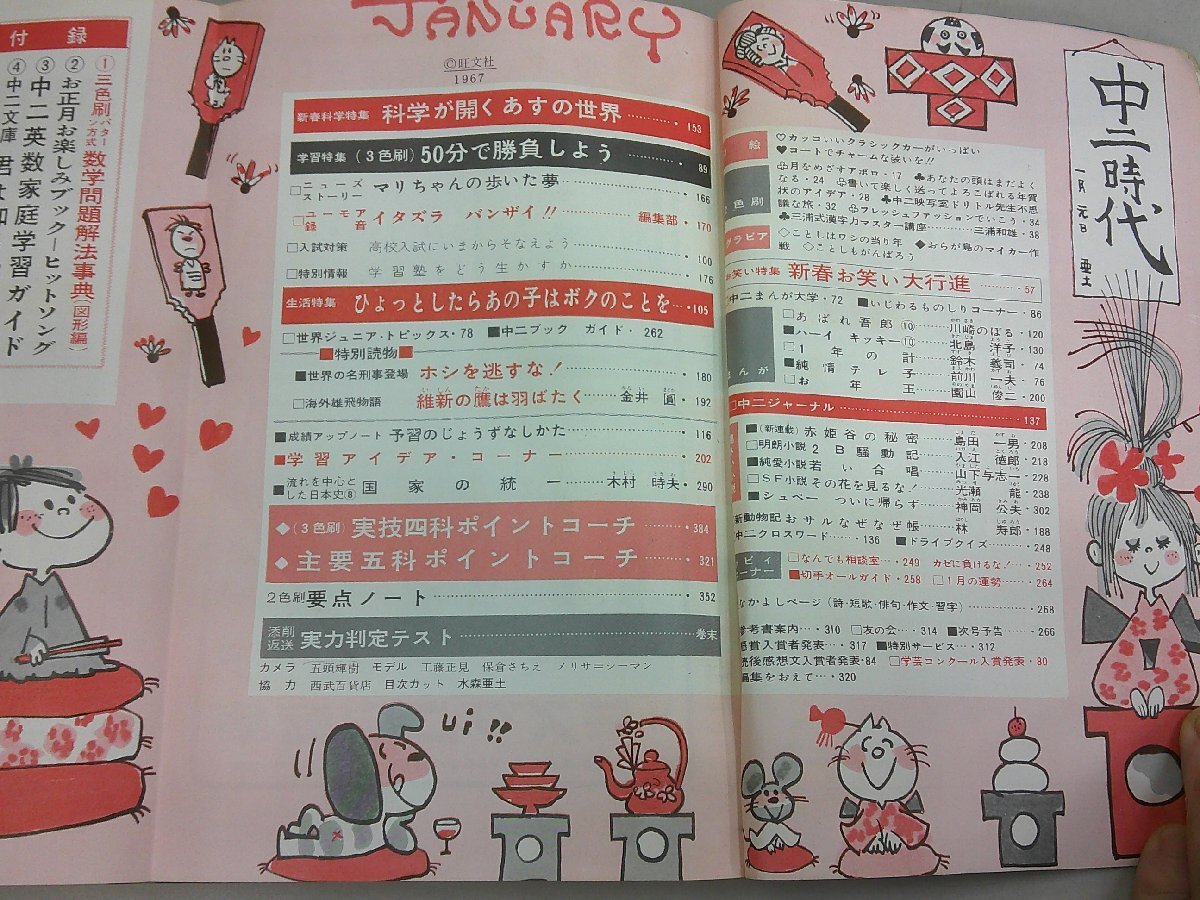 中二時代
一月元旦
亜土
JANUARY
©旺文社
1967
新春科学特集 科学が開くあすの世界………・153
学習特集 (3色刷) 50分で勝負しよう………・89
□ニューズストーリー マリちゃんの歩いた夢………・166
□ユーモア録音 イタズラ バンザイ!!………編集部・170
□入試対策 高校入試にいまからそなえよう………・100
□特別情報 学習塾をどう生かすか………・176
生活特集 ひょっとしたらあの子はボクのことを…・105
□世界ジュニア・トピックス・78 ■中二ブック ガイド・262
■特別読物■
■世界の名刑事登場 ホシを逃すな!………・180
□海外雄飛物語 維新の鷹は羽ばたく………金井 圓・192
■成績アップノート 予習のじょうずなしかた………・116
■学習アイデア・コーナー………・202
■流れを中心とした日本史⑧ 国家の統一………木村 時夫・290
◆(3色刷) 実技四科ポイントコーチ………・384
◆主要五科ポイントコーチ………・321
2色刷 要点ノート………・352
添削返送 実力判定テスト………巻末
カメラ 五頭輝樹 モデル 工藤正見 保倉さちえ メリサ=シーマン
協力 西武百貨店 目次カット 水森亜土
絵
♡カッコいいクラシックカーがいっぱい
♥コートでチャームな装いを!!
色刷
♧月をめざすアポロ・17 ♣あなたの頭はまだよく
なる・24 ♧書いて楽しく送ってよろこばれる年賀
状のアイデア・28 ♣中二映写室ドリトル先生不思
議な旅・32 ♧フレッシュファッションでいこう・34
♣三浦式漢字力マスター講座………三浦和雄・38
グラビア
◇ことしはワシの当り年 ◆おらが島のマイカー作
戦 ◇ことしもがんばろう
お笑い特集 新春お笑い大行進………・57
中二まんが大学・72 ■いじわるものしりコーナー・86
まんが
□あばれ吾郎⑩………川崎のぼる・120
■ハーイ キッキー⑩………北島 洋子・130
□1年の計………鈴木 義司・74
■純情テレ子………前川 一夫・76
□お年玉………園山 俊二・200
□中二ジャーナル………・137
■(新連載)赤姫谷の秘密………島田 一男・208
□明朗小説 2B騒動記………入江 徳郎・218
■純愛小説 若い合唱………山下与志一・228
□SF小説 その花を見るな!………光瀬 龍・238
■シュペー ついに帰らず………神岡 公夫・302
新動物記おサルなぜなぜ帳………林 寿郎・188
中二クロスワード………・136 ■ドライブクイズ………・248
コーナー
□なんでも相談室…・249 カゼに負けるな!…・252
■切手オールガイド・258 □1月の運勢………・264
なかよしページ(詩・短歌・俳句・作文・習字)………・268
参考書案内…・310 □友の会…・314 ■次号予告…・266
懸賞入賞者発表…・317 ■特別サービス…・312
読後感想文入賞者発表・84 □学芸コンクール入賞発表・80
編集をおえて…・320
付録
①三色刷パターン方式 数学問題解法事典(図形編)
②お正月お楽しみブックーヒットソング
③中二英数家庭学習ガイド
④中二文庫 君は
ui!!